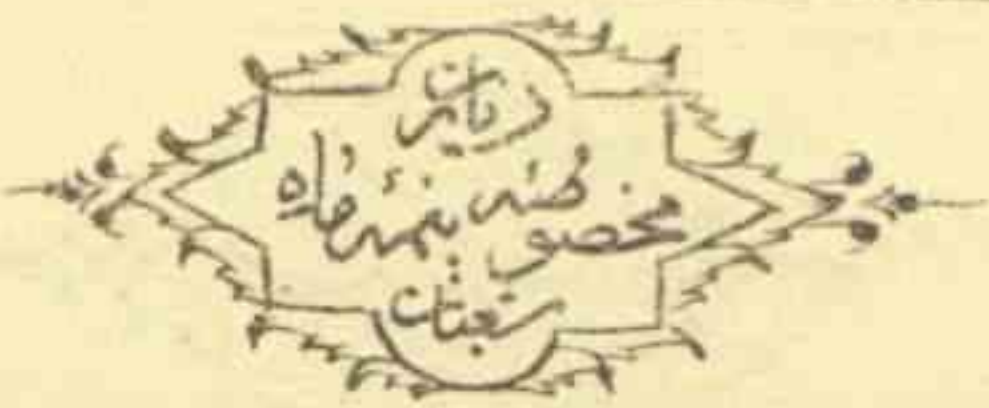 زیارت
مخصوصه نیمهٔ ماه
شعبان